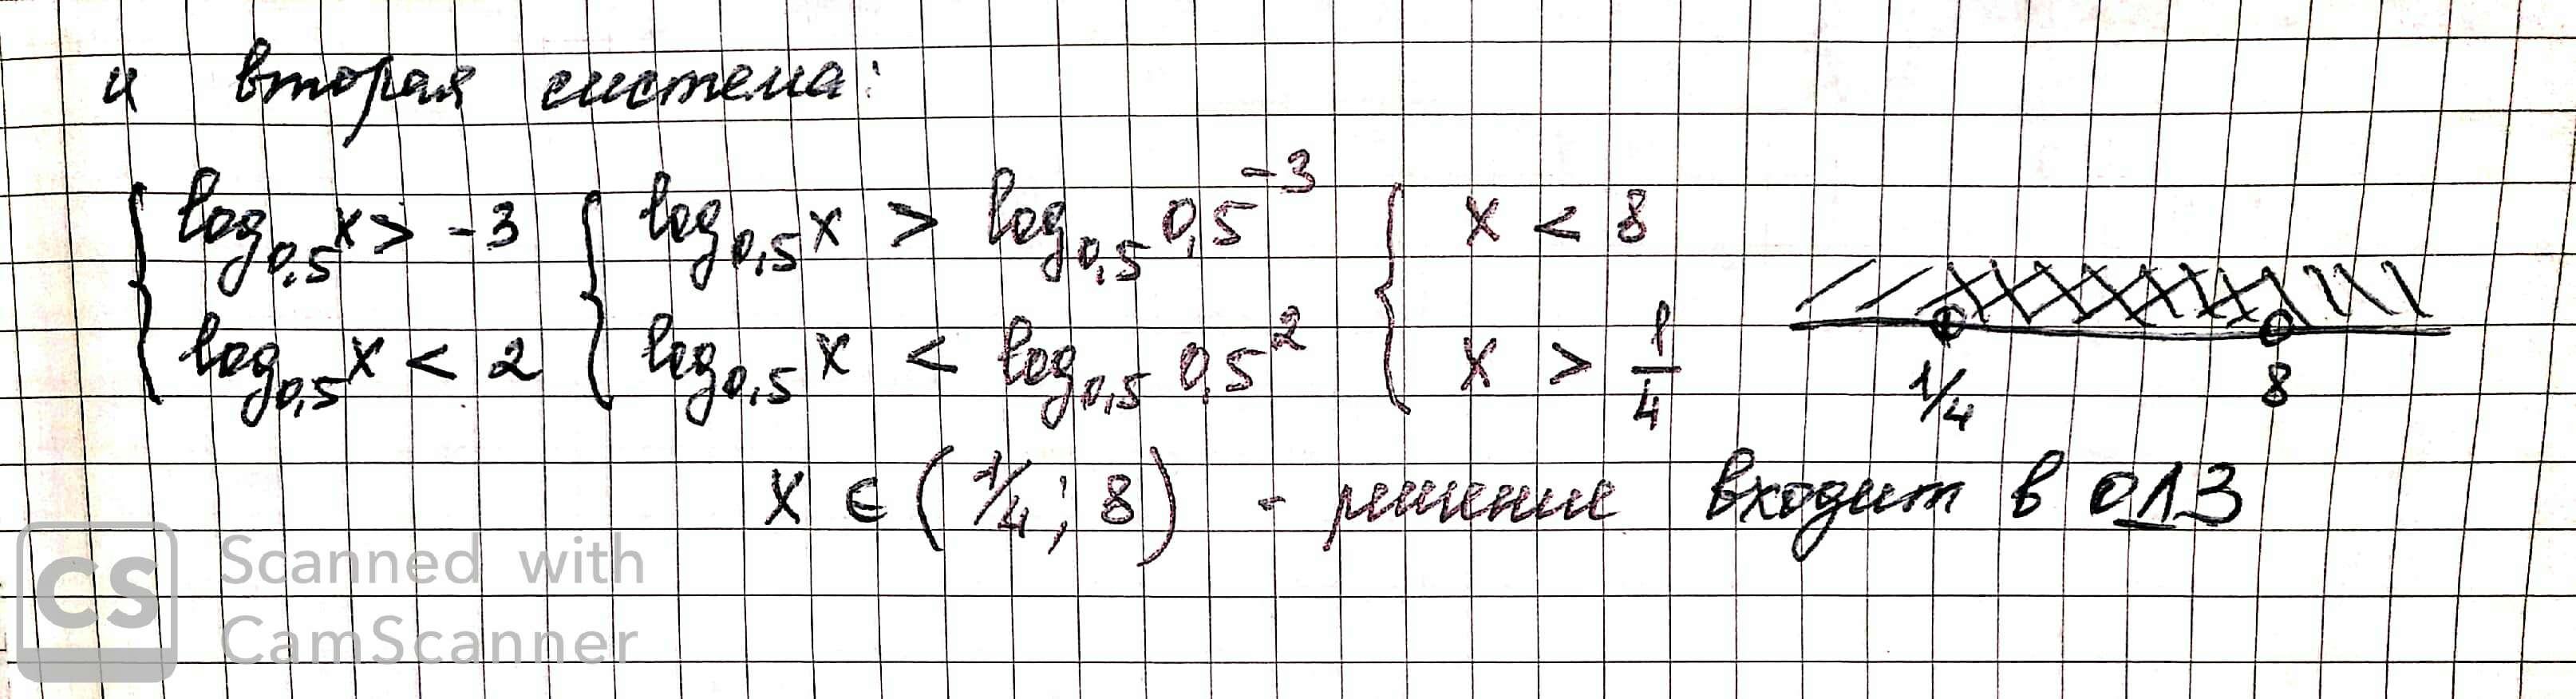 и вторая система:
{ log₀,₅ x > -3 { log₀,₅ x > log₀,₅ 0,5⁻³ { x < 8
log₀,₅ x < 2 log₀,₅ x < log₀,₅ 0,5² x > 1/4
1/4 8
x ∈ (1/4; 8) - решение входит в ОДЗ
CS Scanned with
CamScanner